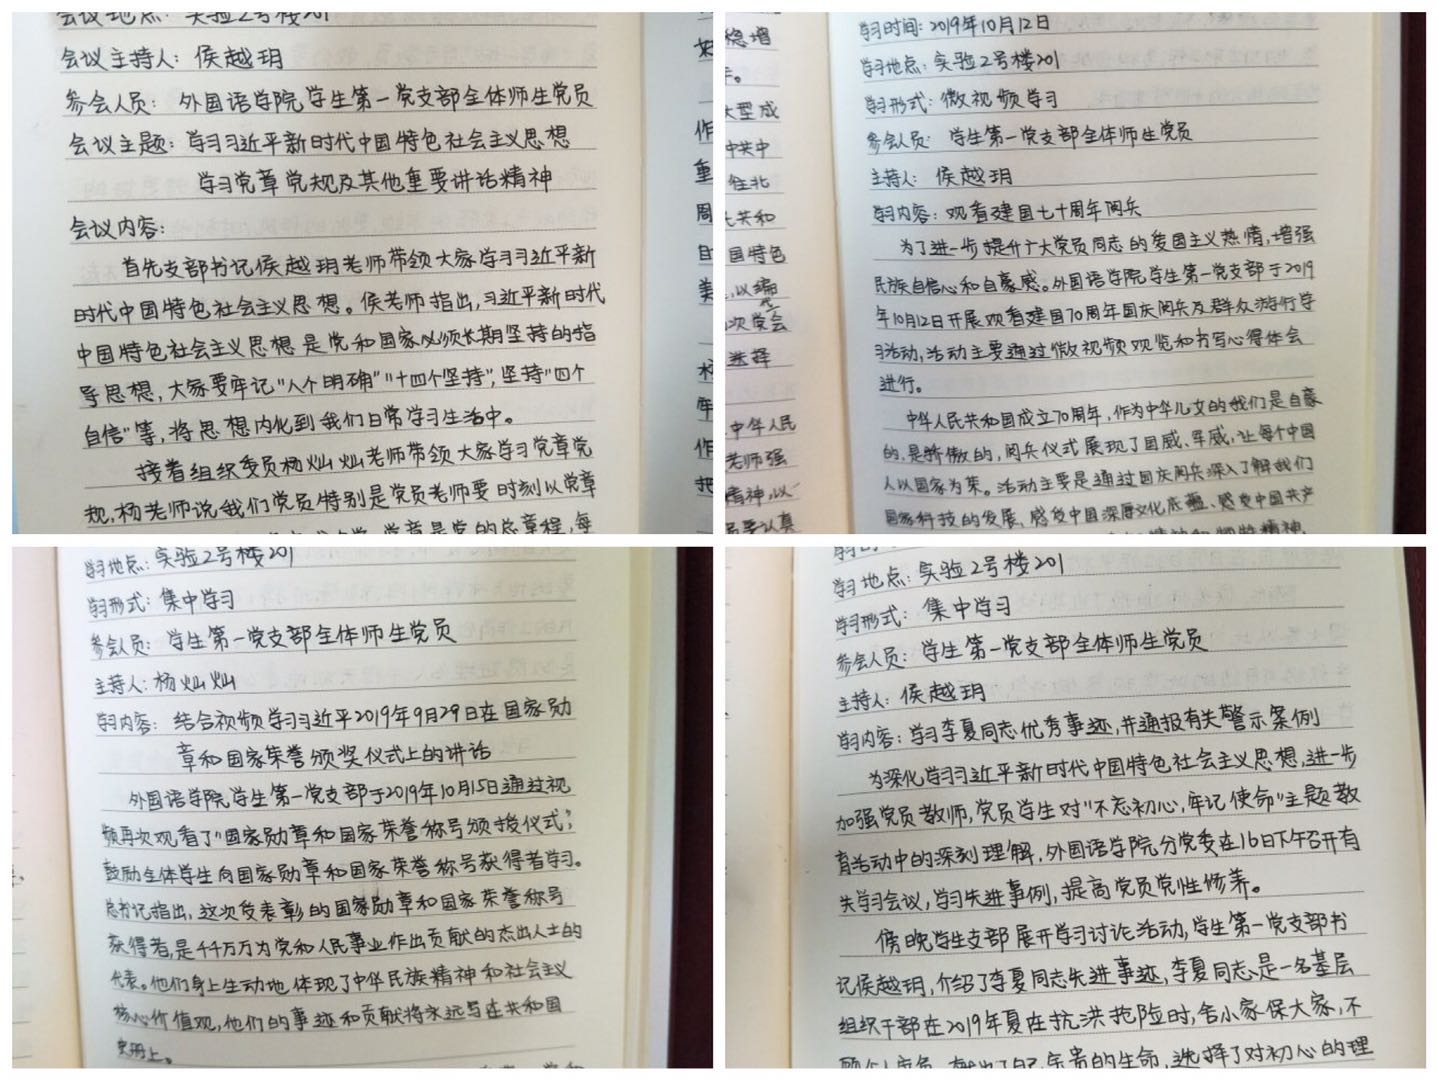 会议地点：实验2号楼201
会议主持人：侯越玥
参会人员：外国语学院学生第一党支部全体师生党员
会议主题：学习习近平新时代中国特色社会主义思想
学习党章党规及其他重要讲话精神
会议内容：
首先支部书记侯越玥老师带领大家学习习近平新
时代中国特色社会主义思想。侯老师指出，习近平新时代
中国特色社会主义思想是党和国家必须长期坚持的指
导思想，大家要牢记“八个明确”“十四个坚持”，坚持“四个
自信”等，将思想内化到我们日常学习生活中。
接着组织委员杨灿灿老师带领大家学习党章党
规，杨老师说我们党员特别是党员老师要时刻以党章
党章是党的总章程，每
学习时间：2019年10月12日
学习地点：实验2号楼201
学习形式：微视频学习
参会人员：学生第一党支部全体师生党员
主持人：侯越玥
学习内容：观看建国七十周年阅兵
为了进一步提升广大党员同志的爱国主义热情，增强
民族自信心和自豪感。外国语学院学生第一党支部于2019
年10月12日开展观看建国70周年国庆阅兵及群众游行学
习活动，活动主要通过微视频观览和书写心得体会
进行。
中华人民共和国成立70周年，作为中华儿女的我们是自豪
的，是骄傲的，阅兵仪式展现了国威、军威，让每个中国
人以国家为荣。活动主要是通过国庆阅兵深入了解我们
国家科技的发展、感受中国深厚文化底蕴、感受中国共产
稳增
大型成
中共中
往北
共和
国特色
，以编
次党会
选择
中华人民
老师强
精神，以
员要认真
学习地点：实验2号楼201
学习形式：集中学习
参会人员：学生第一党支部全体师生党员
主持人：杨灿灿
学习内容：结合视频学习习近平2019年9月29日在国家勋
章和国家荣誉颁奖仪式上的讲话
外国语学院学生第一党支部于2019年10月15日通过视
频再次观看了“国家勋章和国家荣誉称号颁授仪式”，
鼓励全体学生向国家勋章和国家荣誉称号获得者学习。
总书记指出，这次受表彰的国家勋章和国家荣誉称号
获得者，是千千万万为党和人民事业作出贡献的杰出人士的
代表。他们身上生动地体现了中华民族精神和社会主义
核心价值观，他们的事迹和贡献将永远写在共和国
史册上。
学习地点：实验2号楼201
学习形式：集中学习
参会人员：学生第一党支部全体师生党员
主持人：侯越玥
学习内容：学习李夏同志优秀事迹，并通报有关警示案例
为深化学习习近平新时代中国特色社会主义思想，进一步
加强党员教师，党员学生对“不忘初心，牢记使命”主题教
育活动中的深刻理解，外国语学院分党委在16日下午召开有
关学习会议，学习先进事例，提高党员党性修养。
傍晚学生支部展开学习讨论活动，学生第一党支部书
记侯越玥，介绍了李夏同志先进事迹，李夏同志是一名基层
组织干部在2019年夏在抗洪抢险时，舍小家保大家，不
顾个人安危，献出了自己宝贵的生命，选择了对初心的理